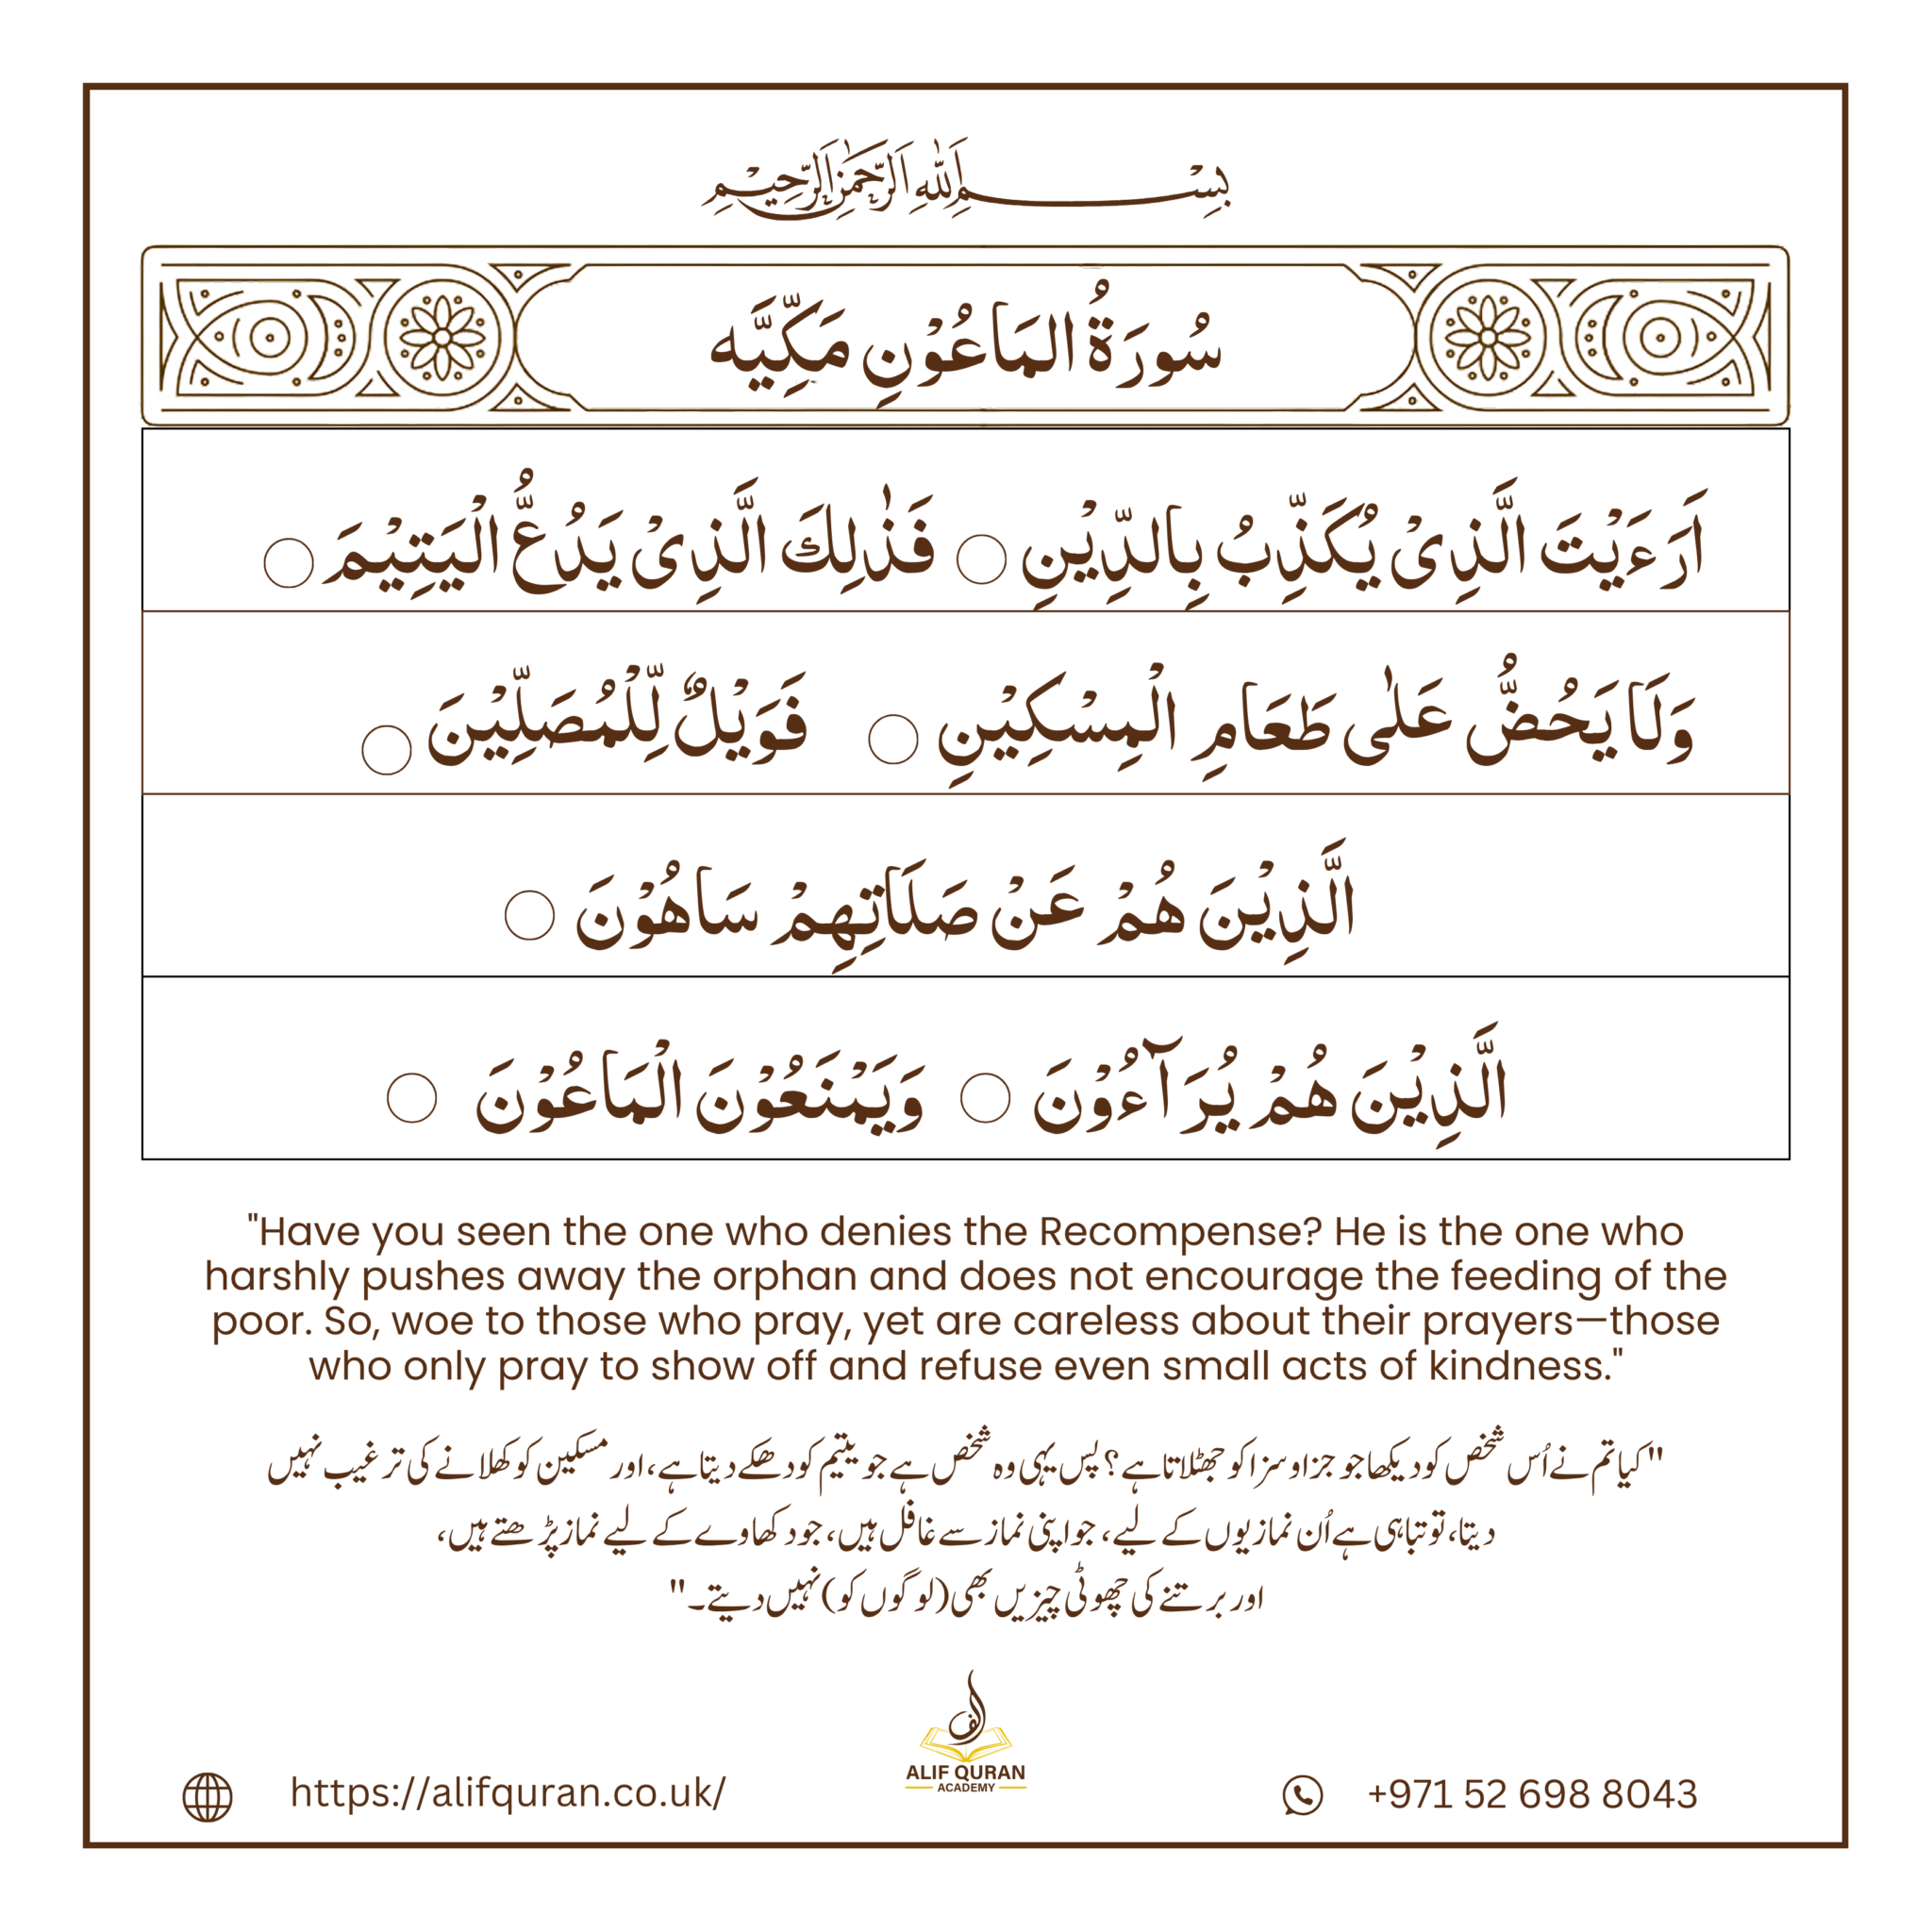 بِسْمِ اللهِ الرَّحْمٰنِ الرَّحِيْمِ
سُورَةُ المَاعُوْنِ مَكِّيَّه
اَرَءَيْتَ الَّذِىْ يُكَذِّبُ بِالدِّيْنِ ○ فَذٰلِكَ الَّذِىْ يَدُعُّ الْيَتِيْمَ ○
وَلَا يَحُضُّ عَلٰى طَعَامِ الْمِسْكِيْنِ ○ فَوَيْلٌ لِّلْمُصَلِّيْنَ ○
الَّذِيْنَ هُمْ عَنْ صَلَاتِهِمْ سَاهُوْنَ ○
الَّذِيْنَ هُمْ يُرَآءُوْنَ ○ وَيَمْنَعُوْنَ الْمَاعُوْنَ ○
"Have you seen the one who denies the Recompense? He is the one who
harshly pushes away the orphan and does not encourage the feeding of the
poor. So, woe to those who pray, yet are careless about their prayers—those
who only pray to show off and refuse even small acts of kindness."
"کیا تم نے اُس شخص کو دیکھا جو جزا و سزا کو جھٹلاتا ہے؟ پس یہی وہ شخص ہے جو یتیم کو دھکے دیتا ہے، اور مسکین کو کھلانے کی ترغیب نہیں
دیتا، تو تباہی ہے اُن نمازیوں کے لیے، جو اپنی نماز سے غافل ہیں، جو دکھاوے کے لیے نماز پڑھتے ہیں،
اور برتنے کی چھوٹی چیزیں بھی (لوگوں کو) نہیں دیتے۔"
الف
ALIF QURAN
ACADEMY
https://alifquran.co.uk/
+971 52 698 8043